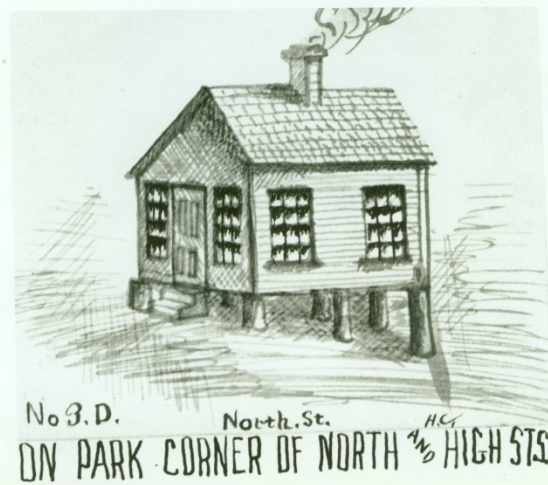 No 3. D. North. St. H.C.
ON PARK CORNER OF NORTH AND HIGH STS